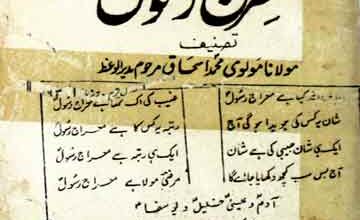 معراج رسول
تصنیف
مولانا مولوی محمد اسحاق مرحوم مدیر الواعظ
کیا ہے معراج رسولؐ
غیب کی اک ہے معراج رسولؐ
شان یہ کس کی ہویدا ہوگی آج
رتبہ یہ کس کا ہے معراج رسولؐ
ایک ہی شان حبیبی کی ہے شان
ایک ہی رتبہ ہے معراج رسولؐ
آج جس سب کچھ دکھایا جائے گا
مرضئ مولا ہے معراج رسولؐ
آدمؑ و عیسیٰؑ خلیلؑ و یوسفؑ